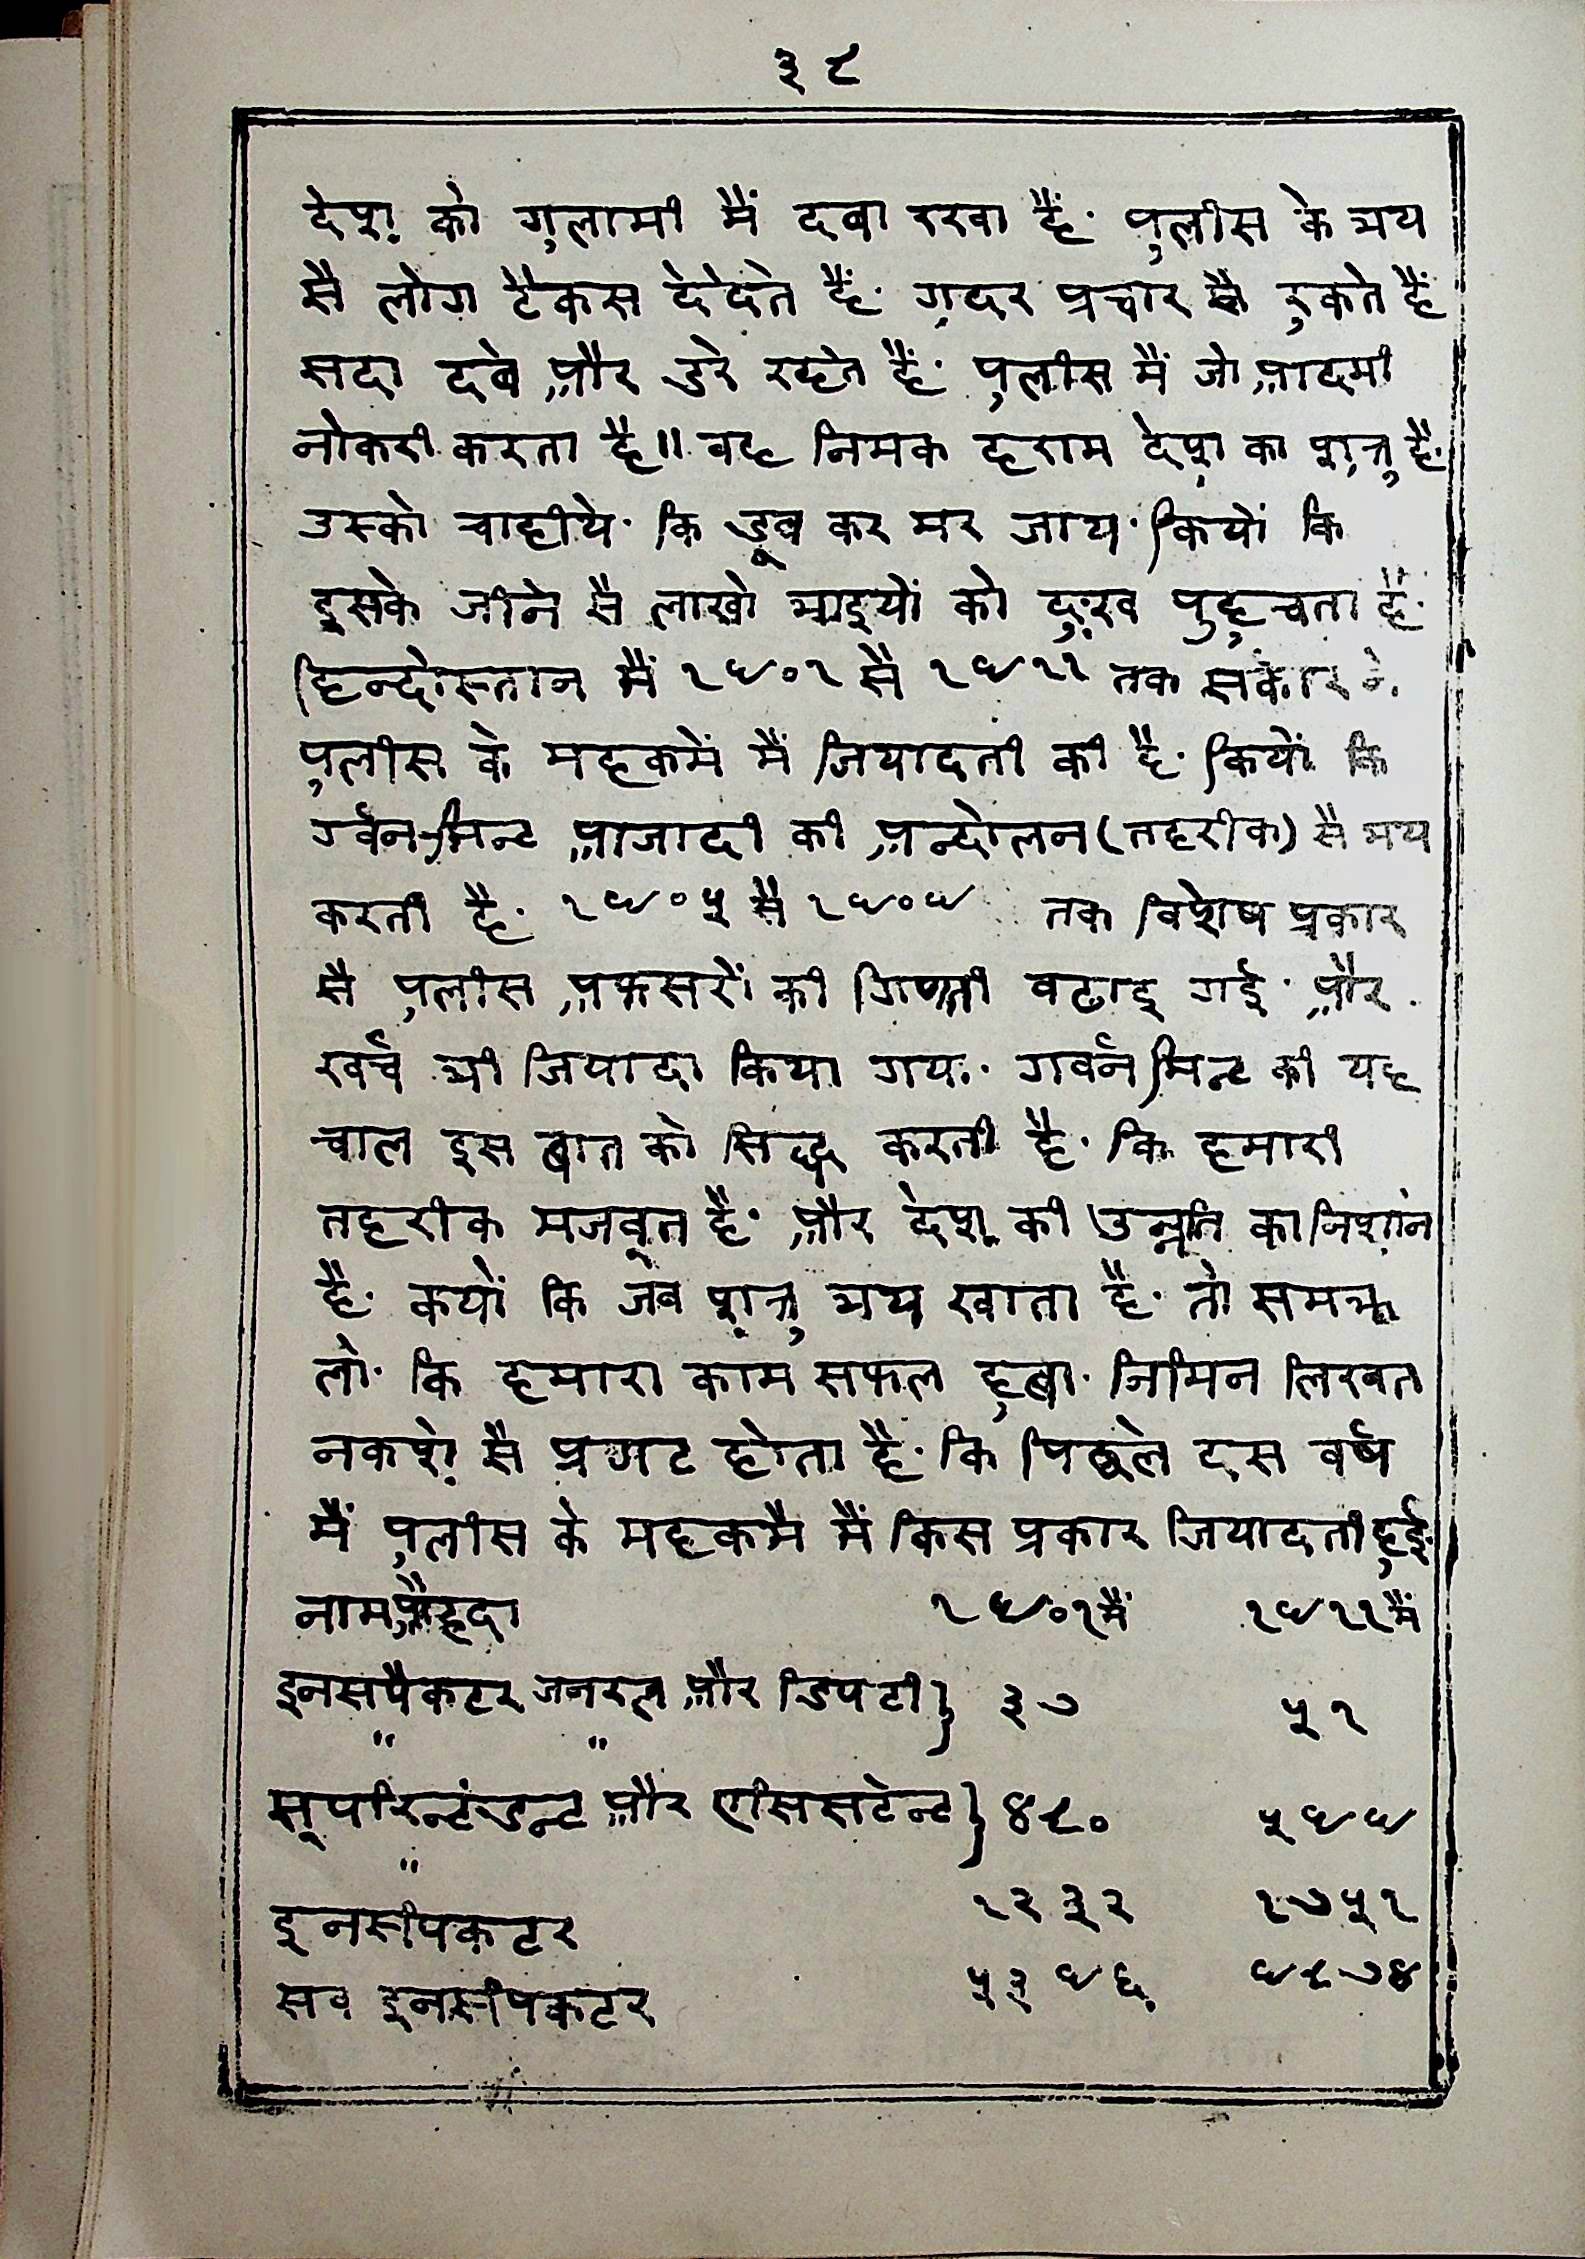 ३८
देश को गुलामी मैं दबा रखा हैं· पुलीस के भय
सै लोग टैकस देदेते हैं· ग़दर प्रचार सै रुकते हैं
सदा दबे और डरे रहते हैं· पुलीस मैं जो आदमी
नोकरी करता है॥ वह निमक हराम देश का शत्रु है·
उस्को चाहीये· कि डूब कर मर जाय· कियों कि
इसके जीने सै लाखो भाइयों को दुःख पुहचता है·
हिन्दोस्तान मैं १९०१ सै १९११ तक सर्कार ने
पुलीस के महकमें मैं जियादती की है· कियों कि
गर्वनमिन्ट आजादी की अन्दोलन (तहरीक) सै भय
करती है· १९०५ सै १९०९ तक विशेष प्रकार
सै पुलीस अफसरों की गिणती वढाइ गई· और
खर्च भी जियादा किया गया· गवर्नमिन्ट की यह
चाल इस बात को सिद्ध करती है· कि हमारी
तहरीक मजवूत है· और देश की उन्नति का निशान
है· कयों कि जब शत्रु भय खाता है· तो समझ
लो· कि हमारा काम सफल हुबा· निमिन लिखत
नकशे सै प्रगट होता है· कि पिछले दस वर्ष
मैं पुलीस के महकमै मैं किस प्रकार जियादती हुई·
नाम औहदा १९०१मैं १९११मैं
इनसपैकटर जनरल और डिपटी} ३७ ५१
" "
सूपरिन्टंडन्ट और एसिसटेन्ट} ४८० ५९९
"
इनसपिकटर १२३२ १७५१
सव इनसपिकटर ५३९६ ९८७४